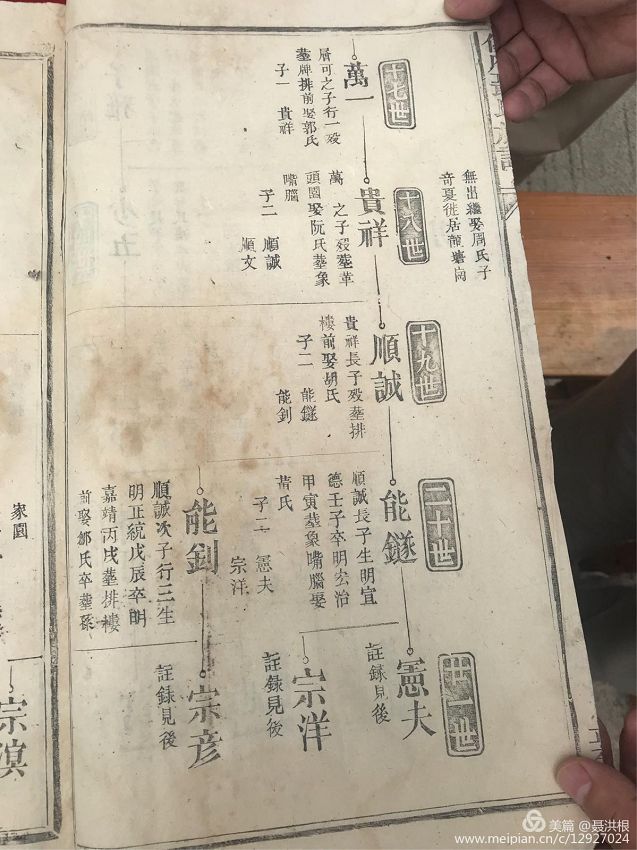 十七世
萬一
層可之子行一歿
葬牌排前娶郭氏
子一　貴祥
無出繼娶周氏子
奇夏徙居
十八世
貴祥
萬一之子歿葬革
頭園娶阮氏葬象
嘴腦
子二　順誠
順文
十九世
順誠
貴祥長子歿葬排
樓前娶胡氏
子二　能鐩
能釗
二十世
能鐩
順誠長子生明宣
德壬子卒明宏治
甲寅葬象嘴腦娶
黃氏
子二　憲夫
宗洋
能釗
順誠次子行三生
明正統戊辰卒明
嘉靖丙戌葬排樓
前娶鄒氏卒葬孫
廿一世
憲夫
註錄見後
宗洋
註錄見後
宗彥
註錄見後
家園
宗滇
美篇 @聂洪根
www.meipian.cn/c/12927024